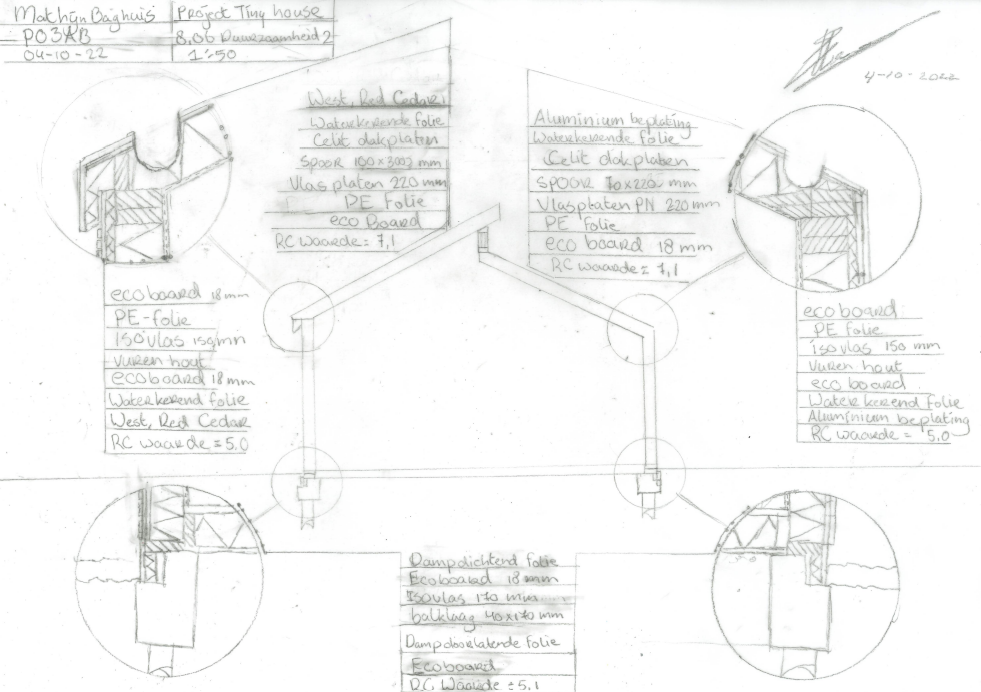 Mathijn Baghuis
Project Tiny house
PO3AB
8,06 Duurzaamheid 2
04-10-22
1:50
4-10-2022
West, Red Cedar
Waterkerende folie
Celit dakplaten
Spoor
Vlas platen 220 mm
PE Folie
eco Board
RC waarde = 7,1
Aluminium beplating
Waterkerende folie
Celit dakplaten
SPOOR 70x220 mm
Vlasplaten PN 220 mm
PE folie
eco board 18 mm
RC waarde = 7,1
ecoboard 18 mm
PE-folie
isovlas 150mm
vuren hout
ecoboard 18 mm
Waterkerend folie
West, Red Cedar
RC waarde = 5,0
ecoboard
PE folie
isovlas 150 mm
Vuren hout
eco board
Waterkerend folie
Aluminium beplating
RC waarde = 5,0
Dampdichtend folie
Ecoboard 18 mm
Isovlas 170 mm
balklaag 40x170 mm
Dampdoorlatende folie
Ecoboard
RC Waarde = 5,1